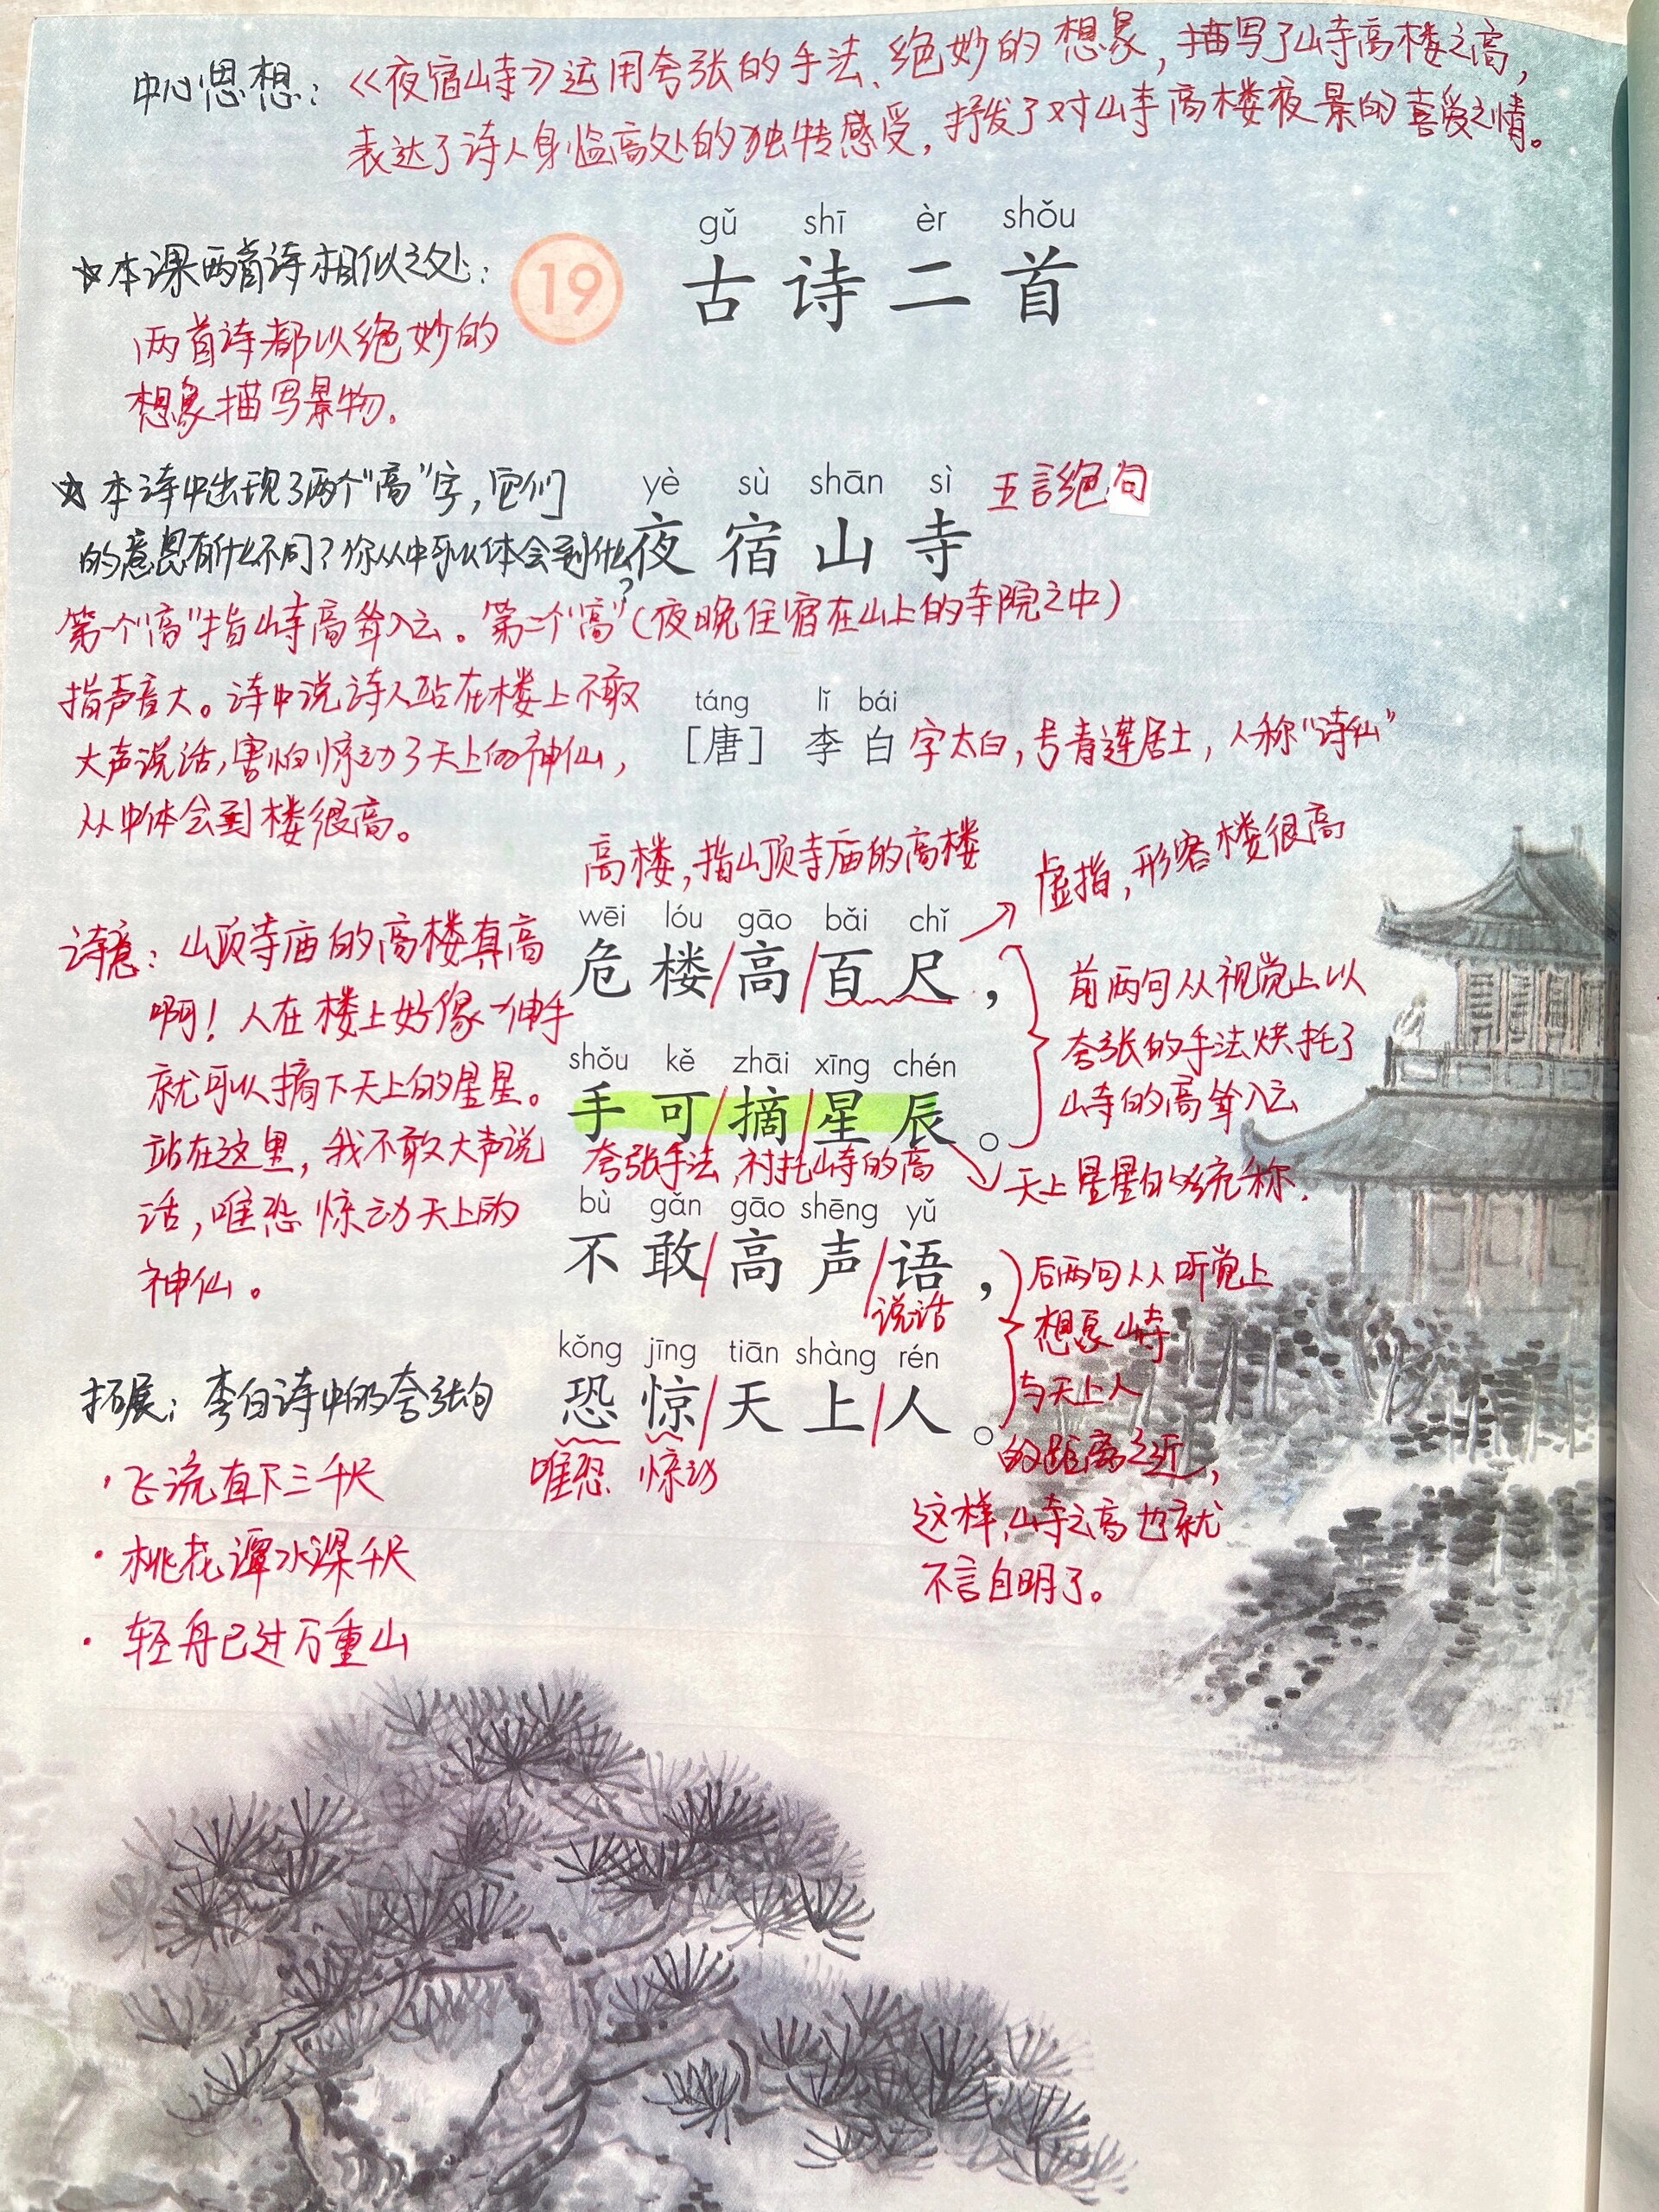 中心思想：《夜宿山寺》运用夸张的手法、绝妙的想象，描写了山寺高楼之高，
表达了诗人身临高处的独特感受，抒发了对山寺高楼夜景的喜爱之情。
gǔ shī èr shǒu
19 古诗二首
☆本课两首诗相似之处：
两首诗都以绝妙的
想象描写景物。
☆本诗中出现了两个“高”字，它们
的意思有什么不同？你从中可以体会到什么？
yè sù shān sì
夜宿山寺 五言绝句
(夜晚住宿在山上的寺院之中)
第一个“高”指山寺高耸入云。第二个“高”
指声音大。诗中说诗人站在楼上不敢
大声说话，害怕惊动了天上的神仙，
从中体会到楼很高。
táng lǐ bái
［唐］ 李白 字太白，号青莲居士，人称“诗仙”
高楼，指山顶寺庙的高楼
虚指，形容楼很高
wēi lóu gāo bǎi chǐ
危楼/高/百尺，
shǒu kě zhāi xīng chén
手可/摘/星辰。
夸张手法，衬托山寺的高
天上星星的统称.
前两句从视觉上以
夸张的手法烘托了
山寺的高耸入云
bù gǎn gāo shēng yǔ
不敢/高声/语，
说话
kǒng jīng tiān shàng rén
恐惊/天上/人。
唯恐 惊动
后两句从听觉上
想象山寺
与天上人
的距离之近，
这样，山寺之高也就
不言自明了。
诗意：山顶寺庙的高楼真高
啊！人在楼上好像一伸手
就可以摘下天上的星星。
站在这里，我不敢大声说
话，唯恐惊动天上的
神仙。
拓展：李白诗中的夸张句
·飞流直下三千尺
·桃花潭水深千尺
·轻舟已过万重山